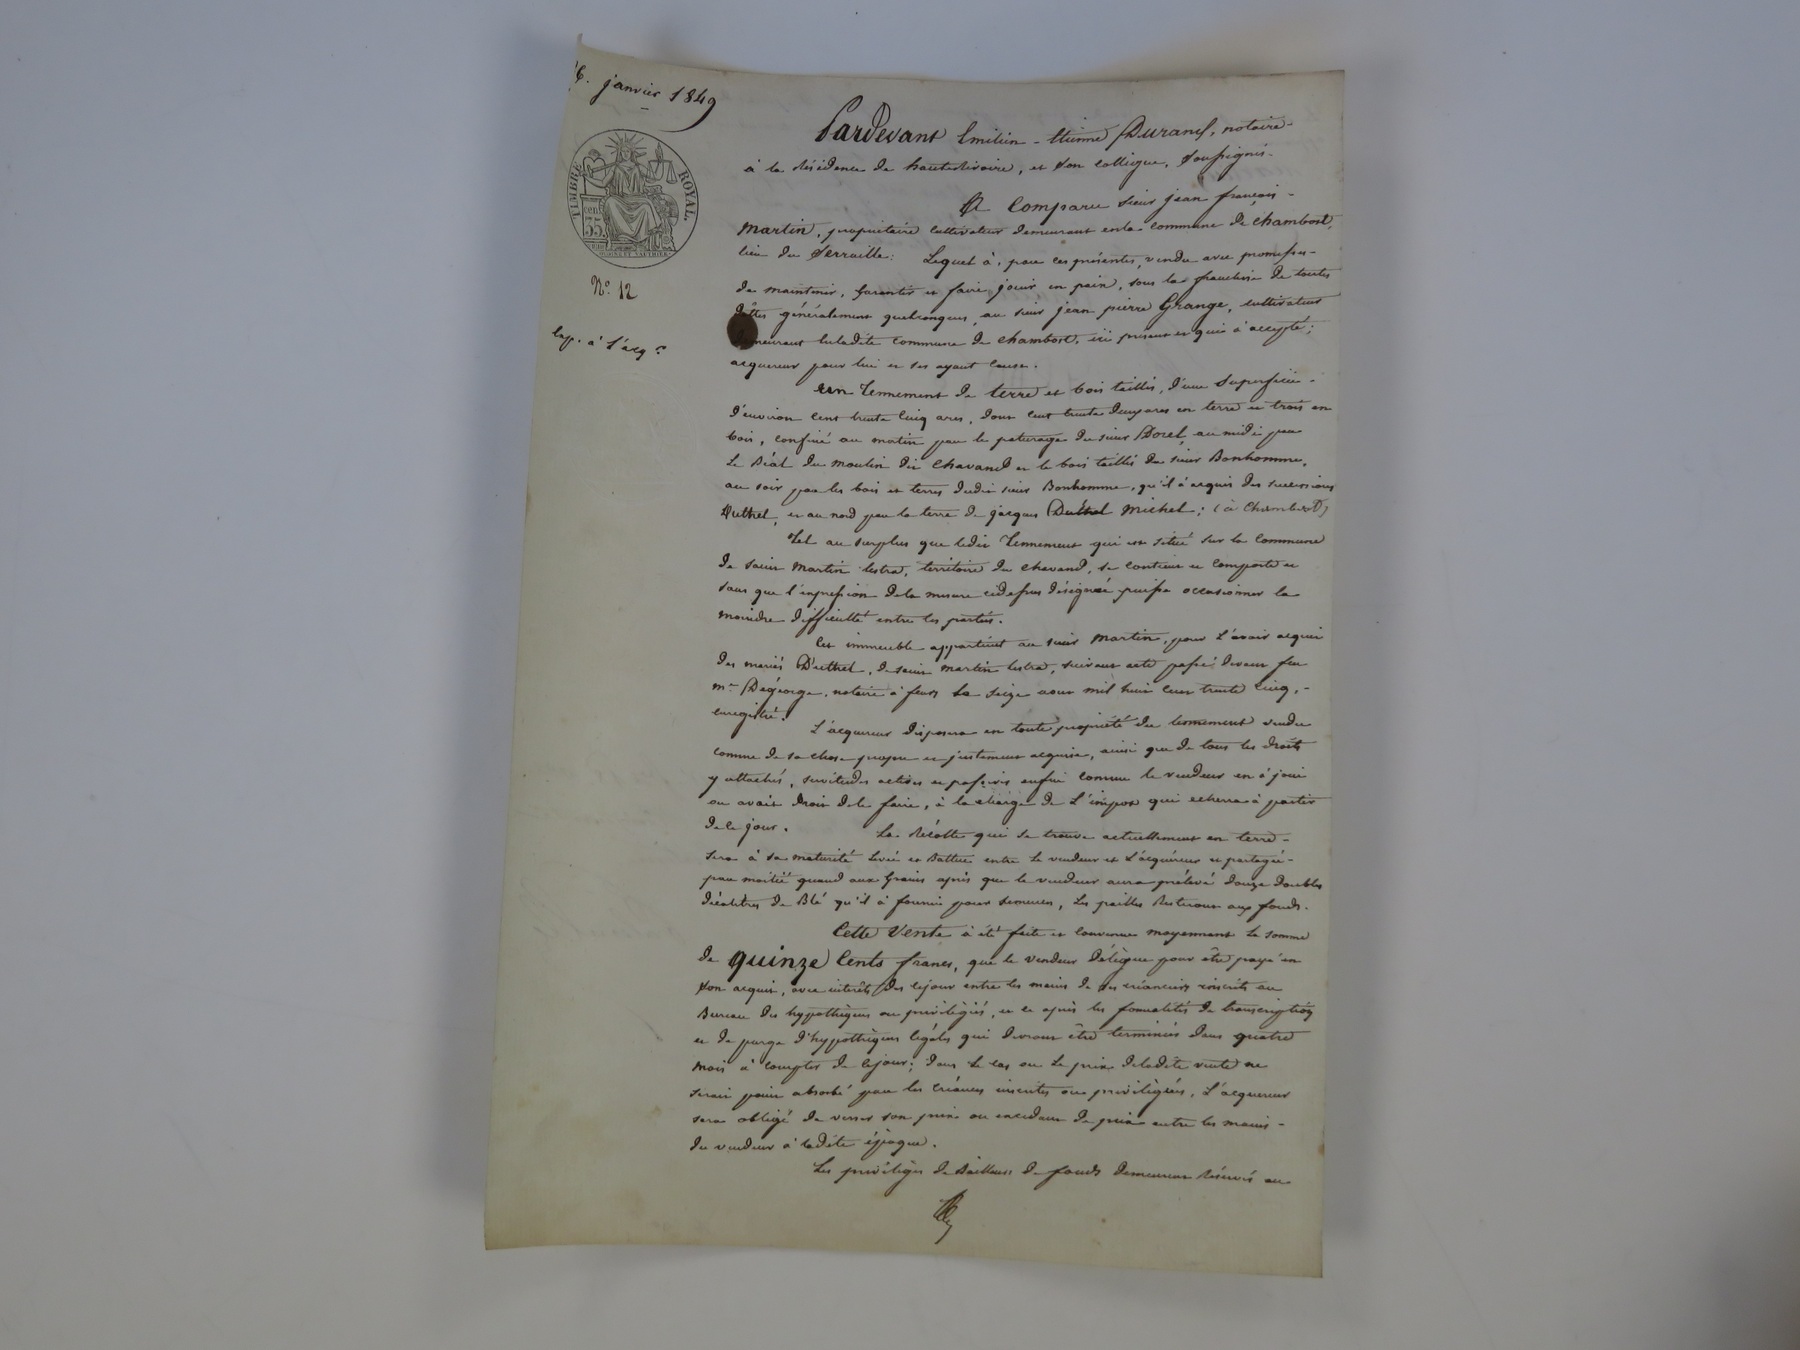 6. janvier 1849
TIMBRE ROYAL
cent
35
N.° 12
exp. à l'acq.r
Pardevant Emilien-Etienne Durand, notaire
à la résidence de hauterivoire, et son collègue, soussignés
A Comparu sieur jean françois
Martin, propriétaire cultivateur demeurant en la commune de chambost,
lieu du Serraille: Lequel à, par ces présentes, vendu avec promesse
de maintenir, garantir et faire jouir en paix, sous la franchise de toutes
dettes généralement quelconques, au sieur jean pierre Grange, cultivateur
demeurant en ladite commune de chambost, ici présent et qui à accepté;
acquéreur pour lui et ses ayant cause.
un Tennement de terre et bois taillis, d'une superficie
d'environ cent trente cinq ares, dont cent trente deux ares en terre et trois en
bois, confiné au matin par le paturage du sieur Dorel, au midi par
Le Béal du moulin dit Chavand et le bois taillis du sieur Bonhomme,
au soir par les bois et terres dudit sieur Bonhomme, qu'il à acquis des successions
Duthel, et au nord par la terre de jacques Duthel Michel; (à Chambost)
Tel au surplus que ledit Tennement qui est situé sur la commune
de saint Martin lestra, territoire du chavand, se contient et comporte et
sans que l'expression de la mesure cidessus désignée puisse occasionner la
moindre difficulté entre les parties.
Cet immeuble appartient au sieur Martin, pour l'avoir acquis
des mariés Duthel, de saint martin lestra, suivant acte passé devant feu
m.e Degeorge, notaire à feurs le seize aout mil huit cent trente cinq,
enregistré.
L'acquéreur disposera en toute propriété du tennement vendu
comme de sa chose propre et justement acquise, ainsi que de tous les droits
y attachés, servitudes actives et passives enfin comme le vendeur en à joui
ou avait droit de le faire, à la charge de L'impot qui écherra à partir
de ce jour.
La récolte qui se trouve actuellement en terre
sera à sa maturité levée et Battue entre le vendeur et L'acquéreur et partagée
par moitié quand aux grains après que le vendeur aura prélevé douze doubles
décalitres de Blé qu'il à fourni pour semences, les pailles resteront aux fonds.
Cette Vente à été faite et convenue moyennant la somme
de quinze Cents francs, que le vendeur délègue pour être payé en
son acquit, avec intérêts dès cejour entre les mains de ses créanciers inscrits au
Bureau des hypothèques ou privilégiés, et ce après les formalités de transcription
et de purge d'hypothèques légales qui devront être terminées dans quatre
mois à compter de cejour; dans le cas ou Le prix deladite vente ne
serait point absorbé par les créances inscrites ou privilégiées, L'acquéreur
sera obligé de verser son prix ou excédant de prix entre les mains
du vendeur à ladite époque.
Les privilèges de Bailleurs de fonds demeurent réservés au